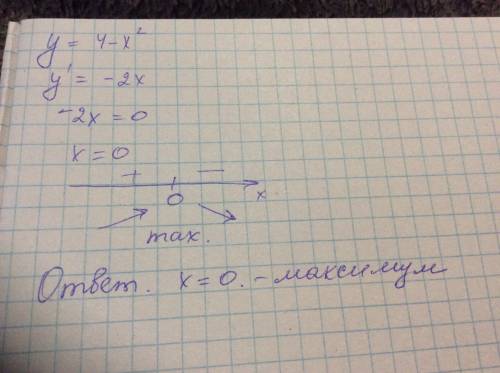 y = 4-x²
y' = -2x
-2x = 0
x = 0
+ —
0 x
max.
Ответ. x = 0. - максимум